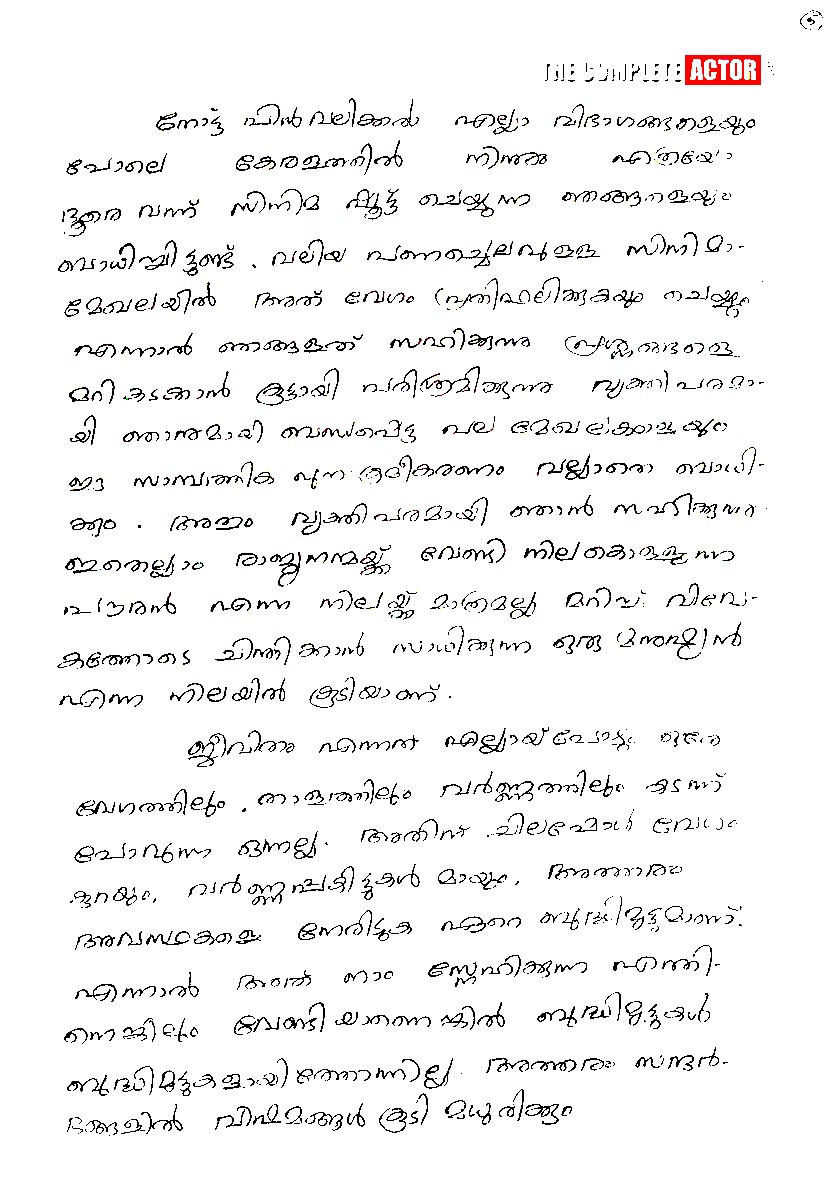 5
THE COMPLETE ACTOR
നോട്ട് പിൻവലിക്കൽ എല്ലാ വിഭാഗങ്ങളെയും
പോലെ കേരളത്തിൽ നിന്നും എത്രയോ
ദൂരെ വന്ന് സിനിമ ഷൂട്ട് ചെയ്യുന്ന ഞങ്ങളെയും
ബാധിച്ചിട്ടുണ്ട്. വലിയ പണച്ചെലവുള്ള സിനിമാ-
മേഖലയിൽ അത് വേഗം പ്രതിഫലിക്കുകയും ചെയ്യും
എന്നാൽ ഞങ്ങളത് സഹിക്കുന്നു പ്രശ്നങ്ങളെ
മറികടക്കാൻ കൂട്ടായി പരിശ്രമിക്കുന്നു വ്യക്തിപരമാ-
യി ഞാനുമായി ബന്ധപ്പെട്ട പല മേഖലകളേയും
ഈ സാമ്പത്തിക പുനഃക്രമീകരണം വല്ലാതെ ബാധി-
ക്കും. അതും വ്യക്തിപരമായി ഞാൻ സഹിക്കുന്നു
ഇതെല്ലാം രാജ്യനന്മയ്ക്ക് വേണ്ടി നിലകൊള്ളുന്ന
പൗരൻ എന്ന നിലയ്ക്ക് മാത്രമല്ല മറിച്ച് വിവേ-
കത്തോടെ ചിന്തിക്കാൻ സാധിക്കുന്ന ഒരു മനുഷ്യൻ
എന്ന നിലയിൽ കൂടിയാണ്.
ജീവിതം എന്നത് എല്ലായ്പോഴും ഒരേ
വേഗത്തിലും, താളത്തിലും വർണ്ണത്തിലും കടന്ന്
പോവുന്ന ഒന്നല്ല. അതിന് ചിലപ്പോൾ വേഗം
കുറയും, വർണ്ണപ്പകിട്ടുകൾ മായും, അത്തരം
അവസ്ഥകളെ നേരിടുക ഏറെ ബുദ്ധിമുട്ടുമാണ്.
എന്നാൽ അത് നാം സ്നേഹിക്കുന്ന എന്തി-
നെങ്കിലും വേണ്ടിയാണെങ്കിൽ ബുദ്ധിമുട്ടുകൾ
ബുദ്ധിമുട്ടുകളായിത്തോന്നില്ല. അത്തരം സന്ദർ-
ഭങ്ങളിൽ വിഷമങ്ങൾ കൂടി മധുരിക്കും